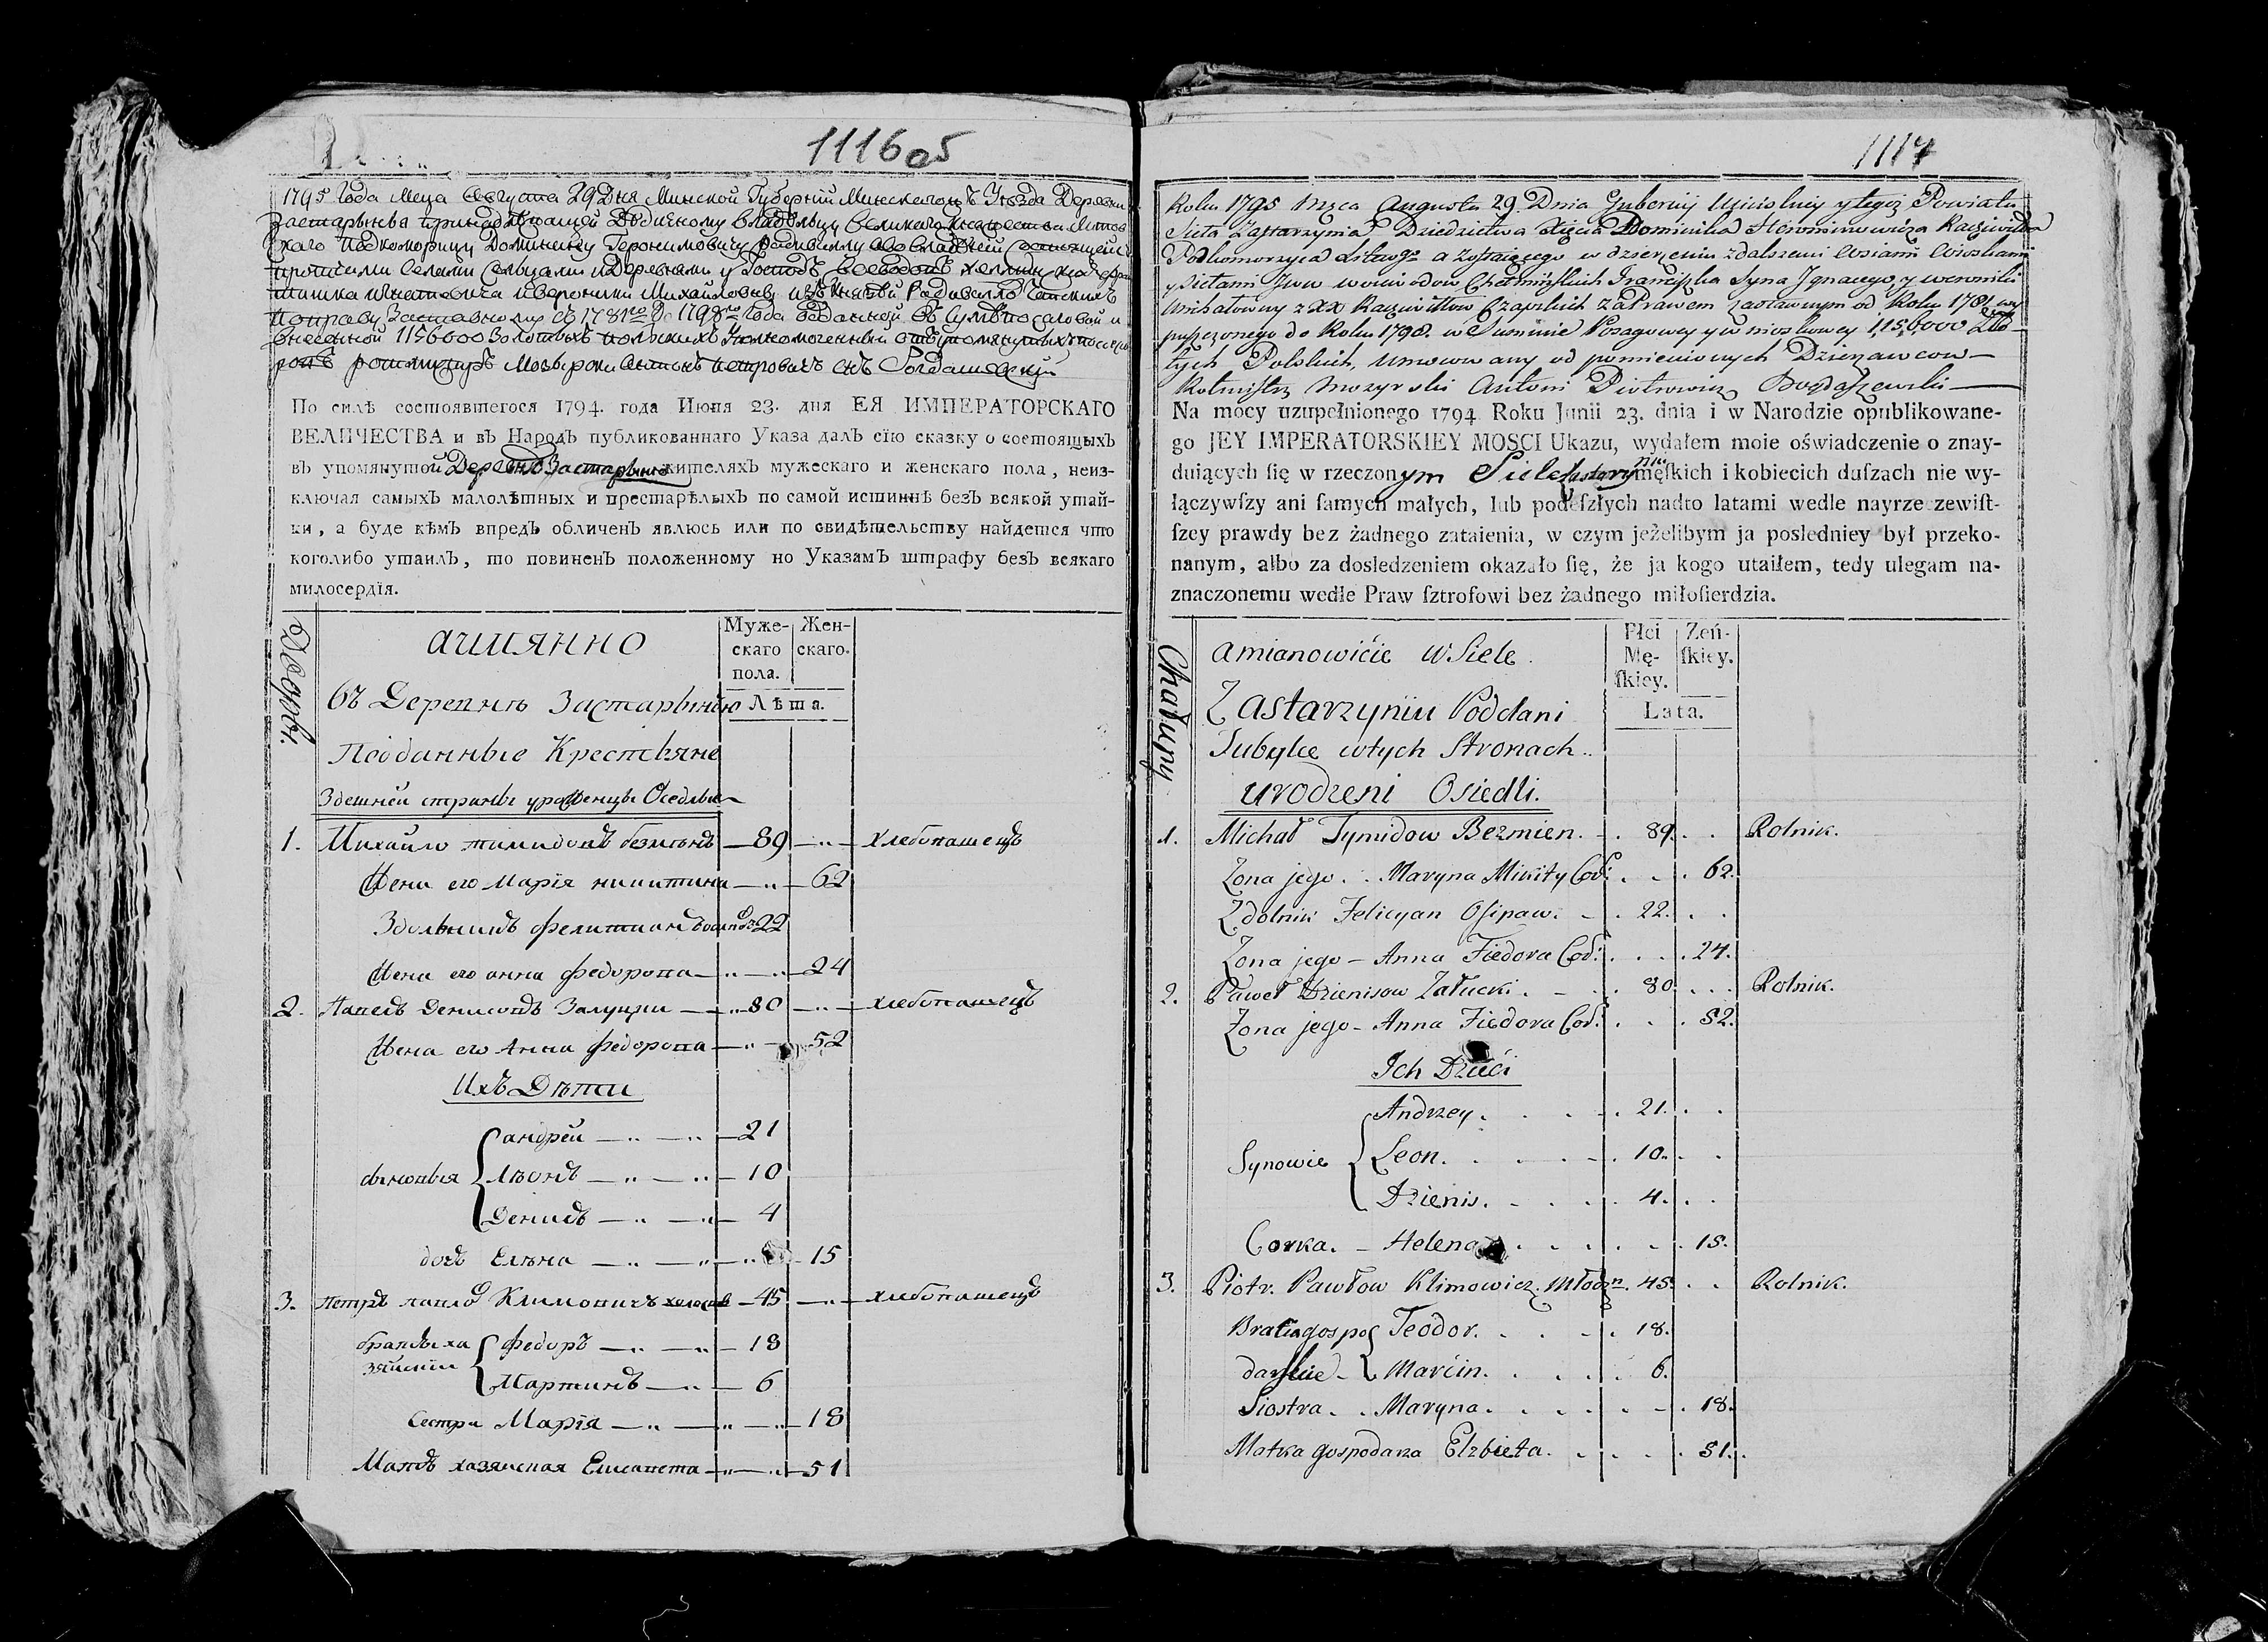 1116 об
1795 Года Меца Августа 29 Дня Минской Губернии Минскаго Уезда Деревни
Застарынья принадлежащей Дедичному владельцу Великаго Княжества Литов
скаго Подкоморицу Доминику Геронимовичу
протчими Селами Сельцами и Деревнями у Господъ
Михайловны изъ Князей Радивиллов Чапских
по праву Заставному съ 1781го до 1798го Года в Сумме посаговой и
внесенной 1156000 Золотых польских
ротмистръ Мозырски Антонъ Петровичъ сынъ Богдашевский
По силѣ состоявшегося 1794. года Июня 23. дня ЕЯ ИМПЕРАТОРСКАГО
ВЕЛИЧЕСТВА и въ Народъ публикованнаго Указа далъ сїю сказку о состоящыхъ
въ упомянутой Деревнѣ Застарынѣ жителяхъ мужескаго и женскаго пола, неиз-
ключая самыхъ малолѣтныхъ и престарѣлыхъ по самой истиннѣ безъ всякой утай-
ки, а буде кѣмъ впредь обличенъ явлюсь или по свидѣтельству найдется что
коголибо утаилъ, то повиненъ положенному по Указамъ штрафу безъ всякаго
милосердїя.
Дворы.
Муже-
скаго
пола.
Жен-
скаго.
Лѣта.
а имянно
Въ Деревнѣ Застарынью
Подданные Крестьяне
Здешней страны уроженцы Оседлые
1. Михайло тимидовъ безмѣнъ — 89 — хлебопашецъ
Жена его Марїя никитина — 62
Здольникъ фелитианъ 22
Жена его анна федорова — 24
2. Павелъ Денисовъ Залуцки — 80 — хлебопашецъ
Жена его Анна федорова — 52
Ихъ Дѣти
сыновья { андрей — 21
Лѣонъ — 10
Денисъ — 4
дочь Елѣна — 15
3. Петръ павловъ Климовичъ холостъ — 45 — хлебопашецъ
братья хо
зяйские { федоръ — 18
Мартинъ — 6
Сестра Марїя — 18
Мать хазяиская Елисавета — 51
1117
Roku 1795 Msca Augusta 29. Dnia Gubernij Minskiey y tegoż Powiatu
Sieła Zastarzynia Dziedzictwa Xięcia Dominika Hieronimowicza Radziwiłła
Podkomorzyca Litewgo a Zostaiącego w dzierżeniu z dalszemi Wsiami
y Siełami Jww woiewodow Chełmińskich Franciszka Syna Ignacego, y weroniki
Michałowny z XX Radziwiłłow Czapskich za Prawem Zastawnym od Roku 1781 wy
puszczonego do Roku 1798. w Summie Posagowey y wniosłowey 1,156000 Zło
tych Polskich, Umocowany od pomienionych Dzierżawcow —
Rotmistrz Mozyrski Antoni Piotrowicz Bogdaszewski —
Na mocy uzupełnionego 1794 Roku Junii 23. dnia i w Narodzie opublikowane-
go JEY IMPERATORSKIEY MOSCI Ukazu, wydałem moie oświadczenie o znay-
duiących ſię w rzeczonym Siele Zastarzyniu męſkich i kobiecich duſzach nie wy-
łączywſzy ani ſamych małych, lub podeſzłych nadto latami wedle nayrzeczewiſt-
ſzey prawdy bez żadnego zataienia, w czym jeżelibym ja posledniey był przeko-
nanym, albo za dosledzeniem okazało ſię, że ja kogo utaiłem, tedy ulegam na-
znaczonemu wedle Praw ſztrofowi bez żadnego miłoſierdzia.
Chałupy
Płci
Mę-
ſkiey.
Żeń-
ſkiey.
Lata.
amianowićie w Siele
Zastarzyniu Poddani
Tubylce w tych Stronach
urodzeni Osiedli.
1. Michał Tymidow Bezmien. 89. Rolnik.
Zona jego . Maryna Mikity Cod: 62.
Zdolnik Felicyan Osipow. 22.
Zona jego – Anna Fiedora Cod: 24.
2. Paweł Dzienisow Załucki. 80. Rolnik.
Zona jego – Anna Fiedora Cod: 52.
Ich Dzieci
Synowie { Andrzey. 21.
Leon. 10.
Dzienis. 4.
Corka. – Helena 15.
3. Piotr. Pawłow Klimowicz. Młodzn. 45. Rolnik.
Bracia gospo
darskie – { Teodor. 18.
Marćin. 6.
Siostra. . Maryna. 18.
Matka gospodarza Elzbieta. 51.